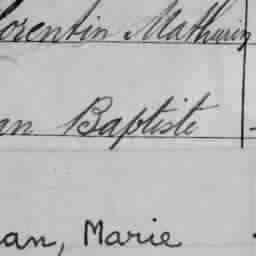 lorentin Mathurin
an Baptiste
an, Marie